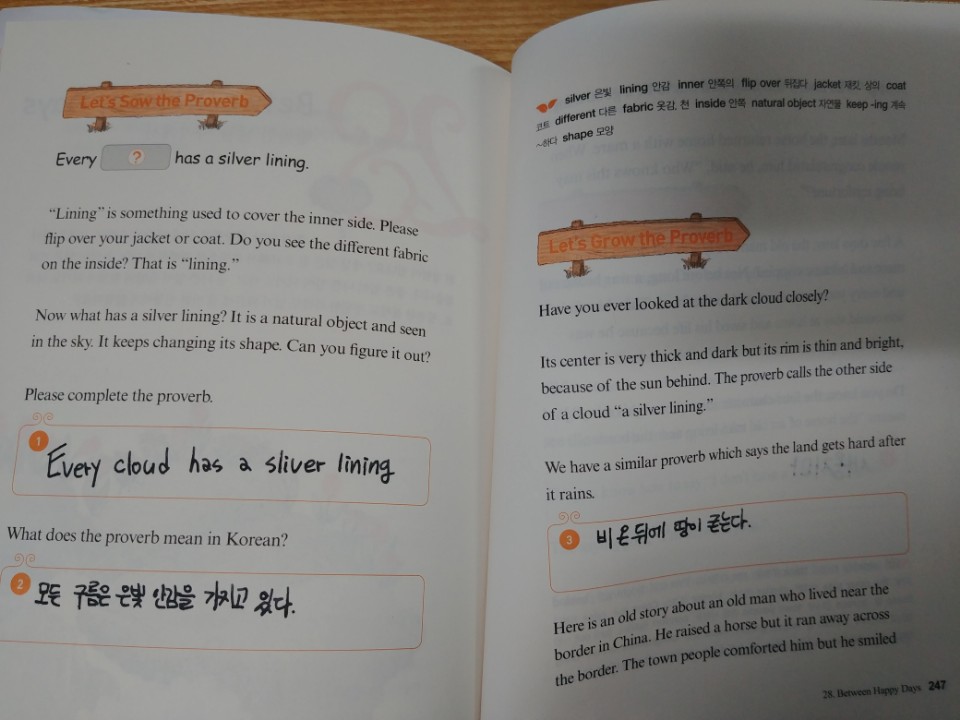 Let's Sow the Proverb
Every ? has a silver lining.
"Lining" is something used to cover the inner side. Please
flip over your jacket or coat. Do you see the different fabric
on the inside? That is "lining."
Now what has a silver lining? It is a natural object and seen
in the sky. It keeps changing its shape. Can you figure it out?
Please complete the proverb.
1
Every cloud has a sliver lining
What does the proverb mean in Korean?
2
모든 구름은 은빛 안감을 가지고 있다.
silver 은빛 lining 안감 inner 안쪽의 flip over 뒤집다 jacket 재킷, 상의 coat
코트 different 다른 fabric 옷감, 천 inside 안쪽 natural object 자연물 keep -ing 계속
~하다 shape 모양
Let's Grow the Proverb
Have you ever looked at the dark cloud closely?
Its center is very thick and dark but its rim is thin and bright,
because of the sun behind. The proverb calls the other side
of a cloud "a silver lining."
We have a similar proverb which says the land gets hard after
it rains.
3
비 온 뒤에 땅이 굳는다.
Here is an old story about an old man who lived near the
border in China. He raised a horse but it ran away across
the border. The town people comforted him but he smiled
28. Between Happy Days 247